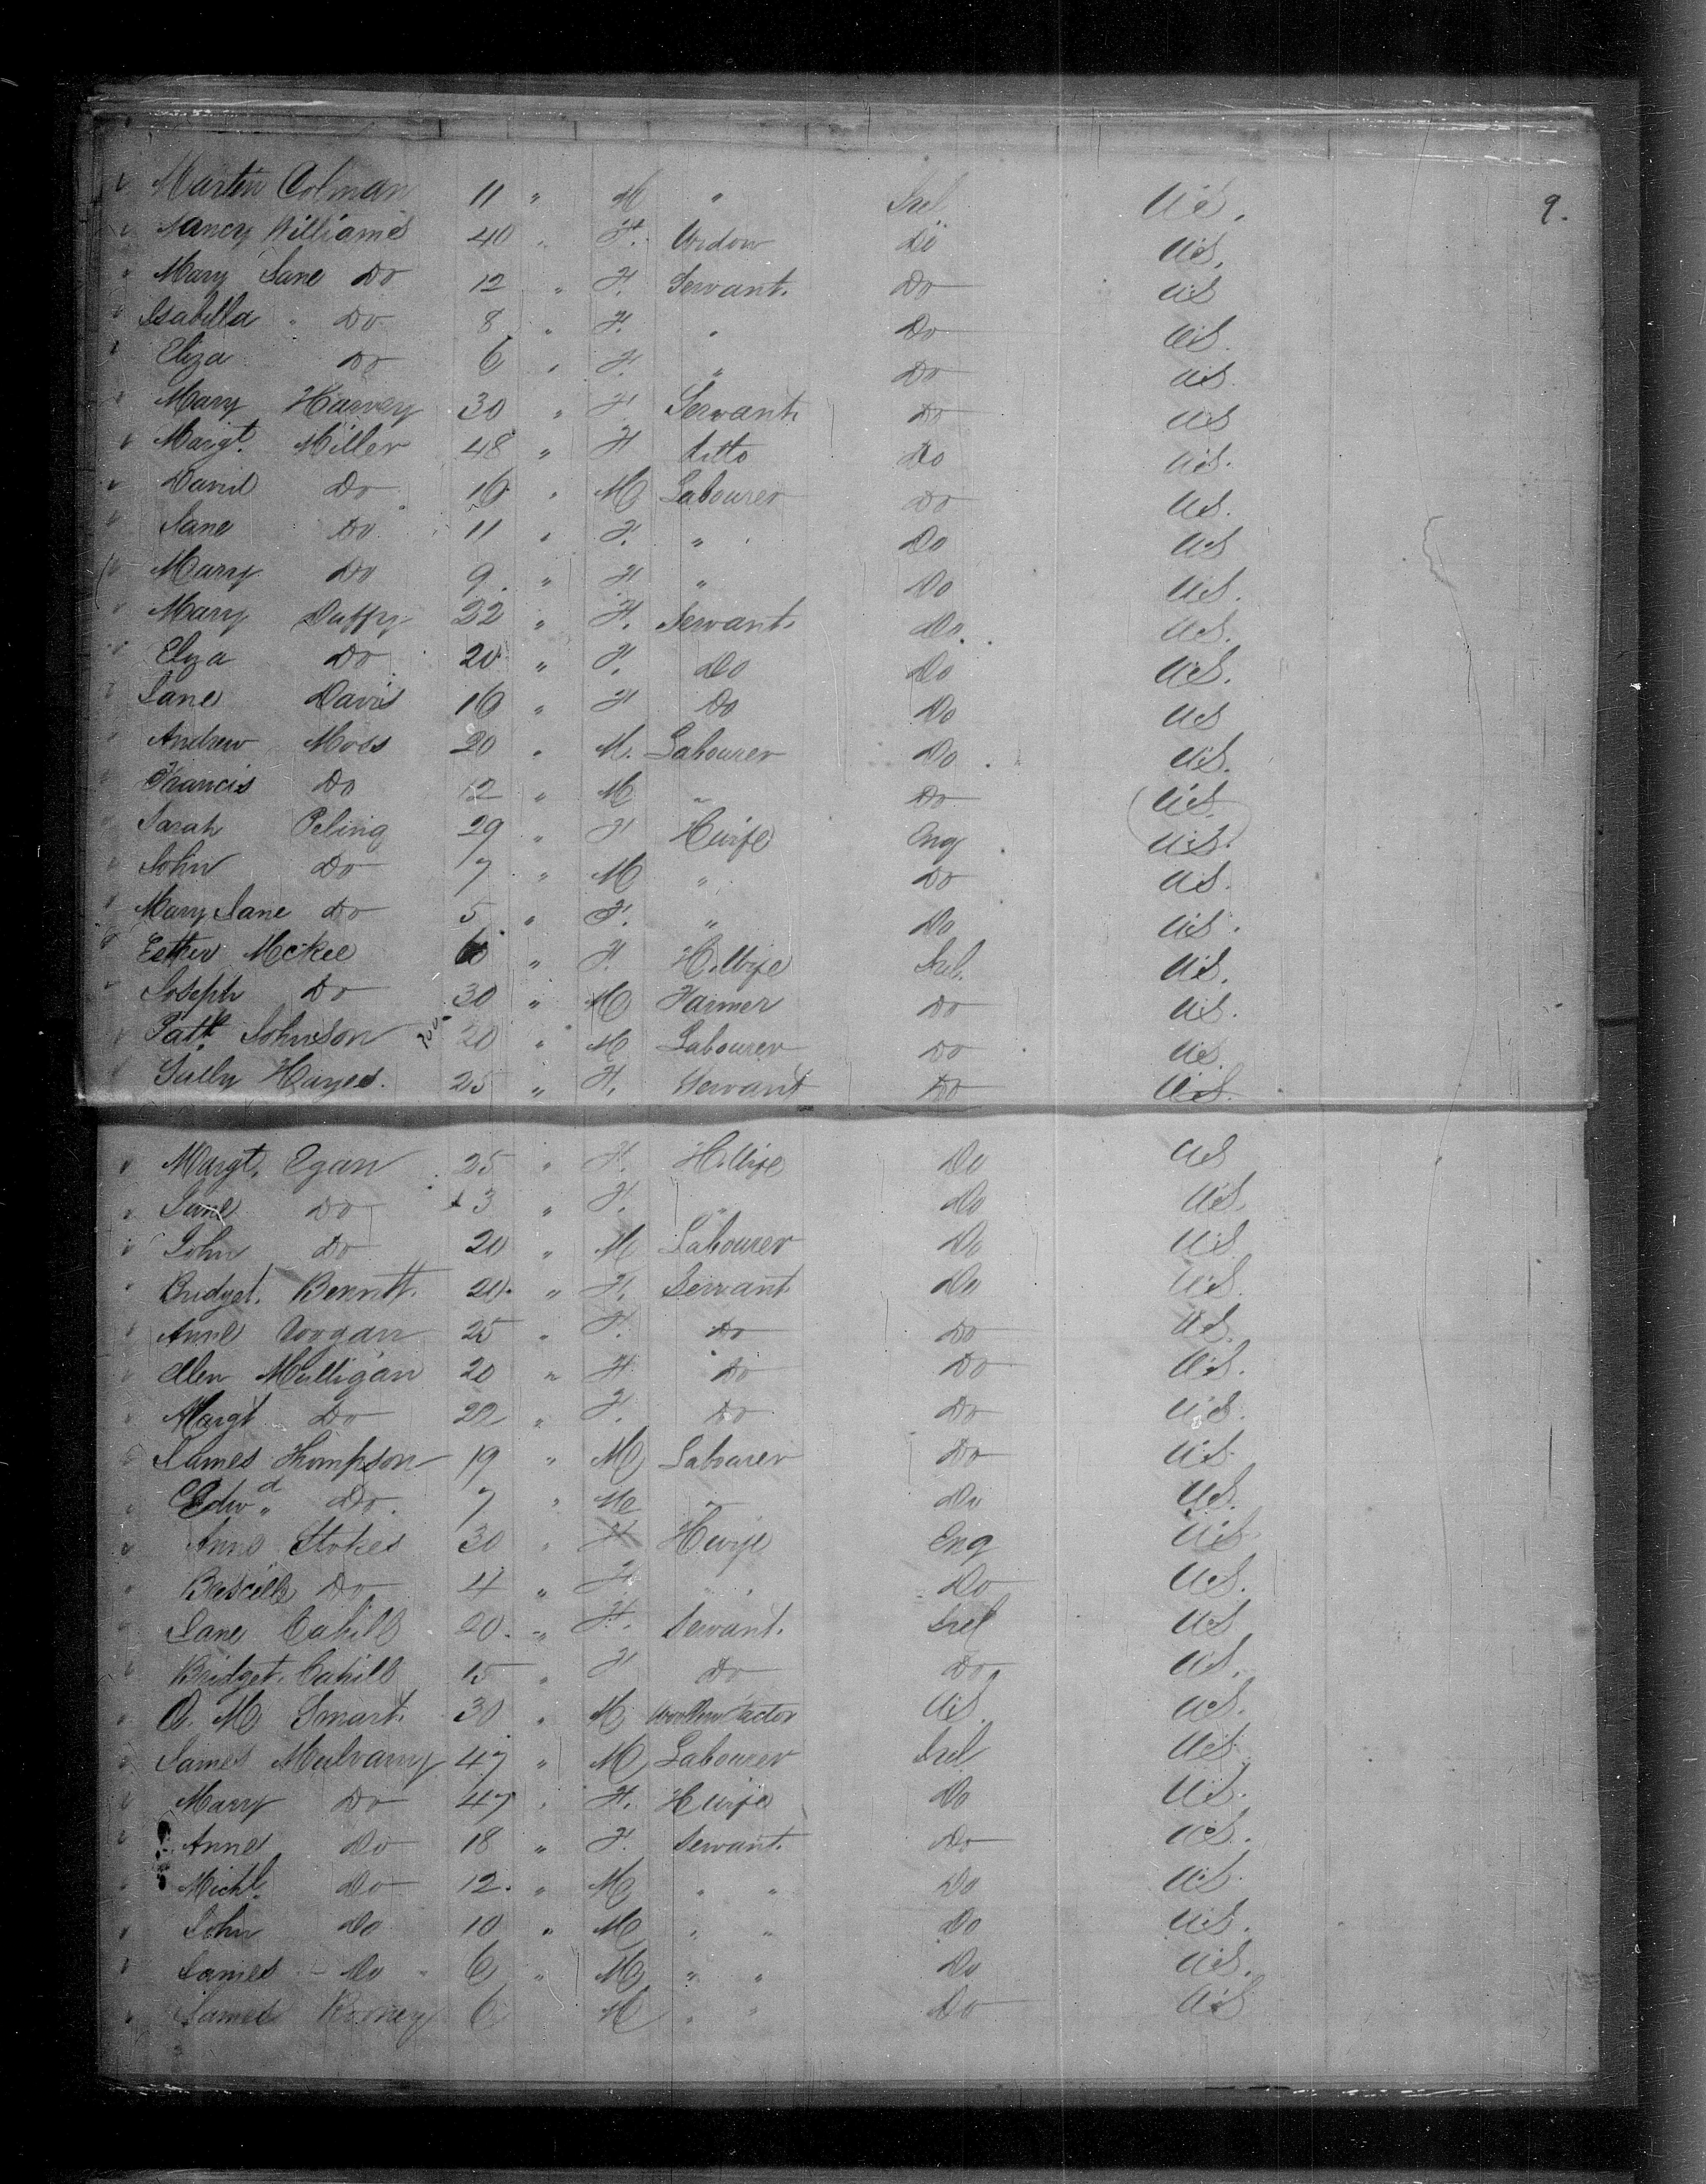 Martin Colman 11 " M " Irel. U.S. 9.
Nancy Williams 40 " F. Widow Do U.S.
Mary Jane Do 12 " F. Servant. Do U.S
Isabella " Do 8 " F. " Do U.S.
Eliza Do 6 " F. " Do U.S.
Mary Harvey 30 " F Servant. Do U.S
Margt. Miller 48 " F ditto Do U.S.
David Do 16 " M Labourer Do U.S.
Jane Do 11 " F. " Do U.S
Mary Do 9 " F " Do U.S.
Mary Duffy 22 " F. Servant. Do. U.S.
Eliza Do 20 " F. Do Do U.S.
Jane Davis 16 " F Do Do U.S
Andrew Moss 20 " M. Labourer Do U.S.
Francis Do 12 " M " Do U.S.
Sarah Peling 29 " F H.wife Eng U.S.
John Do 7 " M " Do U.S.
Mary Jane Do 5 " F. " Do U.S.
Esther McKee " F. H.Wife Irel. U.S.
Joseph Do 30 " M Farmer Do U.S.
Patk. Johnson 20 " M Labourer Do U.S.
Sally Hayes. 25 " F. Servant Do U.S.
Margt. Egan 25 " F. H.Wife Do U.S
Jane Do 3 " F. " Do U.S.
John Do 20 " M Labourer Do U.S
Bridget. Bennett. 20 " F. Servant Do U.S.
Anne Coogan 25 " F. Do Do U.S.
Ellen Mulligan 20 " F Do Do U.S.
Margt Do 22 " F. Do Do U.S.
James Thompson 19 " M Labourer Do U.S.
Edwd. Do. 7 " M " Do U.S.
Anne Stokes 30 " F H.wife Eng U.S
Do 4 " F. " Do U.S.
Jane Cahill 20. " F. Servant. Irel U.S
Bridget. Cahill 15 " F Do Do. U.S.
M Smart. 30 " M U.S. U.S.
James Mulvany 47 " M Labourer Irel U.S.
Mary Do 47 " F. H.wife Do U.S.
Anne Do 18 " F. Servant. Do U.S.
Michl. Do 12. " M " " Do U.S.
John Do 10 " M " " Do U.S.
James Do 6 " M " " Do U.S.
James Rooney 6 M " " Do U.S